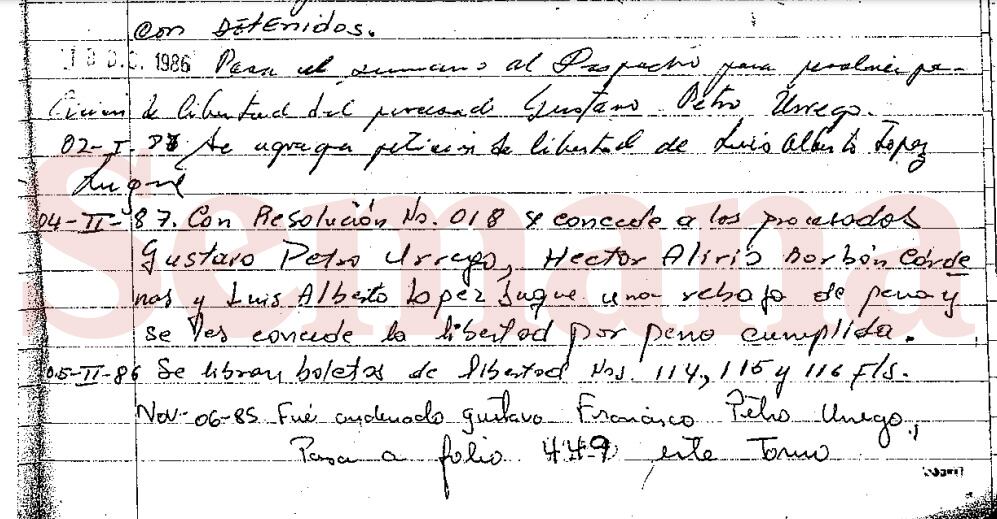 Con Detenidos.
1986 Pasa el sumario al Despacho para resolver pe-
ticion de libertad del procesado Gustavo Petro Urrego.
02-I-87 Se agrega peticion de libertad de Luis Alberto Lopez
Luque
04-II-87. Con Resolución No. 018 se concede a los procesados
Gustavo Petro Urrego, Hector Alirio Borbón Cárde
nas y Luis Alberto Lopez Luque una rebaja de pena y
se les concede la libertad por pena cumplida.
05-II-86 Se libran boletas de libertad Nos. 114, 115 y 116 F/s.
Nov-06-85 Fué condenado Gustavo Francisco Petro Urrego.,
Pasa a folio 449 este Tomo
Semana